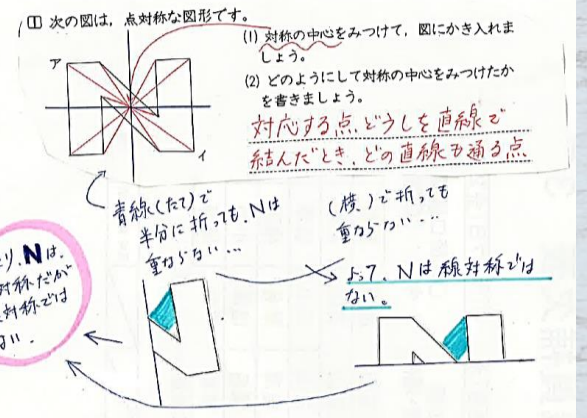 1 次の図は，点対称な図形です。
(1) 対称の中心をみつけて，図にかき入れま
しょう。
(2) どのようにして対称の中心をみつけたか
を書きましょう。
ア
イ
対応する点どうしを直線で
結んだとき、どの直線も通る点
青線(たて)で
半分に折っても、Nは
重ならない…
(横)で折っても
重ならない…
よって、Nは線対称では
ない。
り、Nは、
対称だが
対称では
ない。